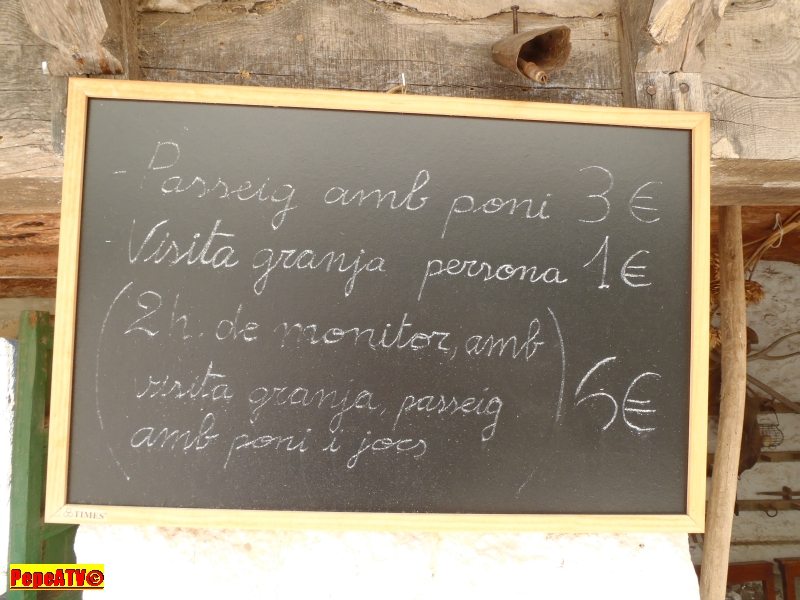 - Passeig amb poni 3€
- Visita granja persona 1€
(2h. de monitor, amb
visita granja, passeig
amb poni i jocs) 5€
TIMES
PepeATV©